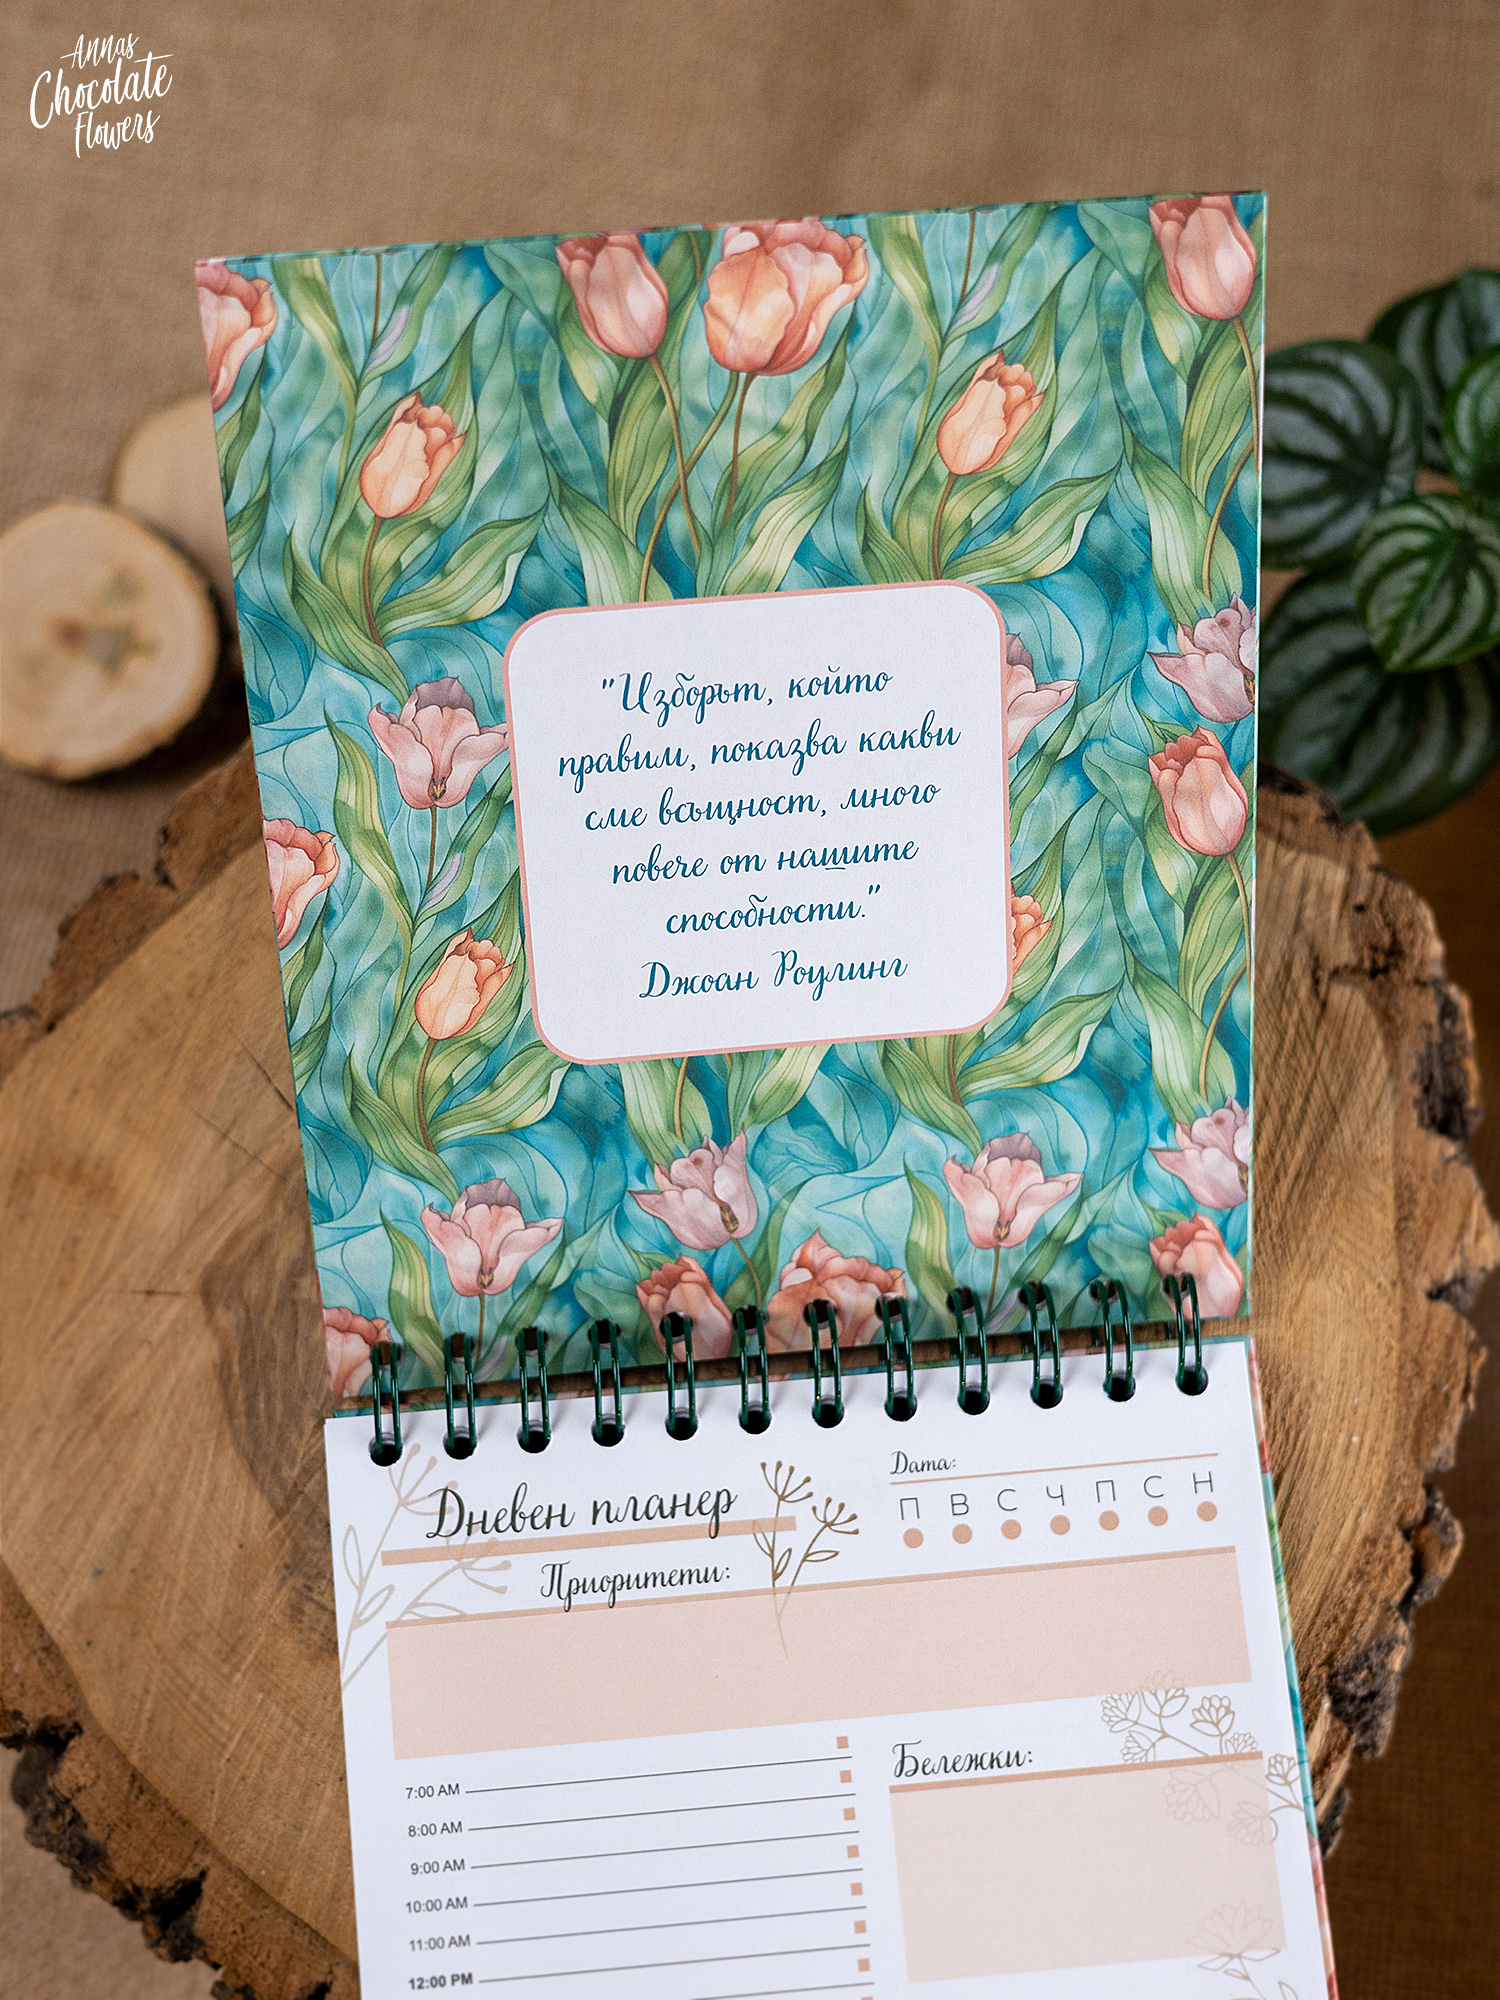 Annas
Chocolate
Flowers
"Изборът, който
правим, показва какви
сме всъщност, много
повече от нашите
способности."
Джоан Роулинг
Дневен планер
Дата:
П В С Ч П С Н
Приоритети:
Бележки:
7:00 AM
8:00 AM
9:00 AM
10:00 AM
11:00 AM
12:00 PM